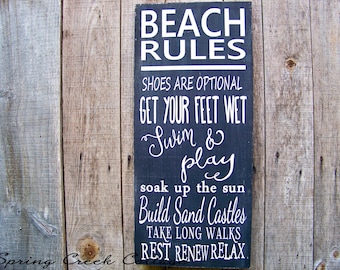 BEACH
RULES
SHOES ARE OPTIONAL
GET YOUR FEET WET
Swim &
play
soak up the sun
Build Sand Castles
TAKE LONG WALKS
REST RENEW RELAX
Spring Creek